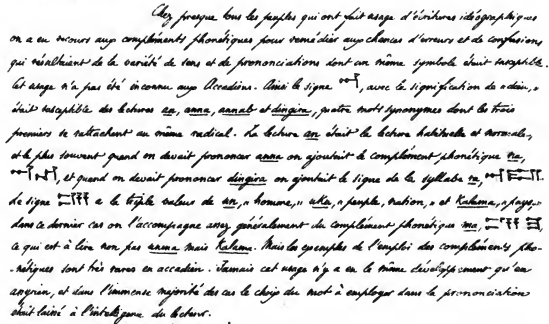 Chez presque tous les peuples qui ont fait usage d'écritures idéographiques
on a eu recours aux compléments phonétiques pour remédier aux chances d'erreurs et de confusions
qui résultaient de la variété de sens et de prononciations dont un même symbole était susceptible.
Cet usage n'a pas été inconnu aux Accadiens. Ainsi le signe 𒀭, avec la signification de « dieu, »
était susceptible des lectures an, anna, annab et dingira, quatre mots synonymes dont les trois
premiers se rattachent au même radical. La lecture an était la lecture habituelle et normale,
et le plus souvent quand on devait prononcer anna on ajoutait le complément phonétique na,
𒀭𒈾, et quand on devait prononcer dingira on ajoutait le signe de la syllabe ra, 𒀭𒊏.
Le signe 𒌦 a la triple valeur de un, « homme, » uku, « peuple, nation, » et Kalama, « pays, »
dans ce dernier cas on l'accompagne assez généralement du complément phonétique ma, 𒌦𒈠
ce qui est à lire non pas unma mais Kalama. Mais les exemples de l'emploi des compléments pho-
-nétiques sont très rares en accadien. Jamais cet usage n'y a eu le même développement qu'en
assyrien, et dans l'immense majorité des cas le choix du mot à employer dans la prononciation
était laissé à l'intelligence du lecteur.